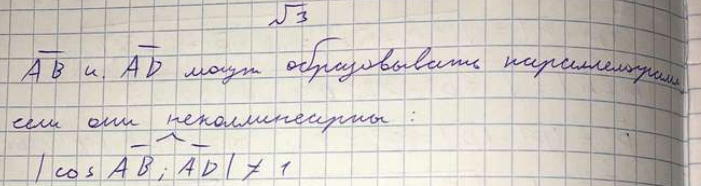 √3
AB и AD могут образовывать параллелограмм
если они неколлинеарны :
| cos AB ; AD | ≠ 1